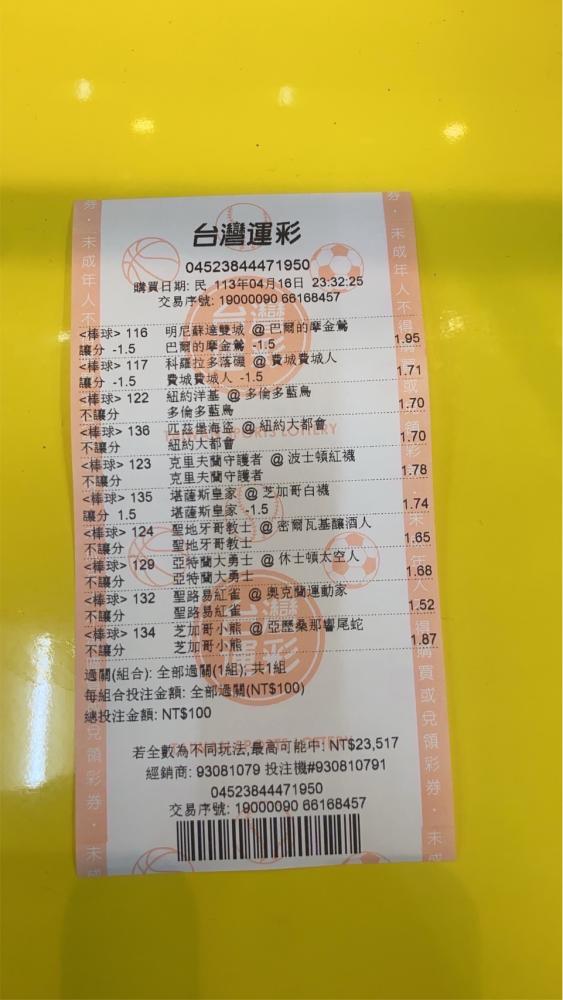 台灣運彩
04523844471950
購買日期: 民 113年04月16日 23:32:25
交易序號: 19000090 66168457
<棒球> 116 明尼蘇達雙城 @ 巴爾的摩金鶯
讓分 -1.5 巴爾的摩金鶯 -1.5 1.95
<棒球> 117 科羅拉多落磯 @ 費城費城人
讓分 -1.5 費城費城人 -1.5 1.71
<棒球> 122 紐約洋基 @ 多倫多藍鳥
不讓分 多倫多藍鳥 1.70
<棒球> 136 匹茲堡海盜 @ 紐約大都會
不讓分 紐約大都會 1.70
<棒球> 123 克里夫蘭守護者 @ 波士頓紅襪
不讓分 克里夫蘭守護者 1.78
<棒球> 135 堪薩斯皇家 @ 芝加哥白襪
讓分 1.5 堪薩斯皇家 -1.5 1.74
<棒球> 124 聖地牙哥教士 @ 密爾瓦基釀酒人
不讓分 聖地牙哥教士 1.65
<棒球> 129 亞特蘭大勇士 @ 休士頓太空人
不讓分 亞特蘭大勇士 1.68
<棒球> 132 聖路易紅雀 @ 奧克蘭運動家
不讓分 聖路易紅雀 1.52
<棒球> 134 芝加哥小熊 @ 亞歷桑那響尾蛇
不讓分 芝加哥小熊 1.87
過關(組合): 全部過關(1組), 共1組
每組合投注金額: 全部過關(NT$100)
總投注金額: NT$100
若全數為不同玩法,最高可能中: NT$23,517
經銷商: 93081079 投注機#930810791
04523844471950
交易序號: 19000090 66168457